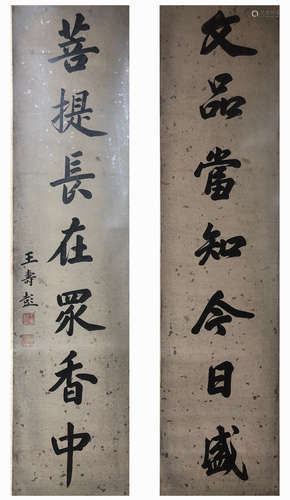 文品當知今日盛
菩提長在眾香中
王壽彭